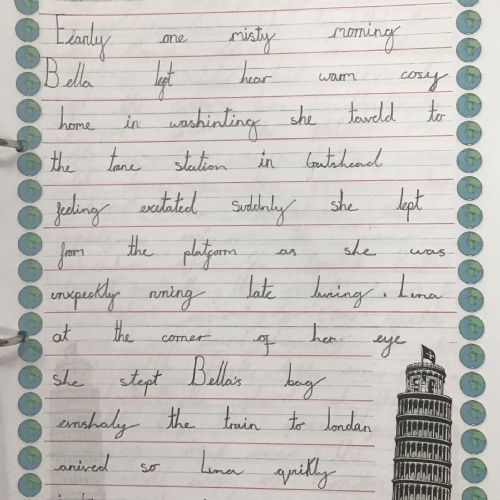 Eearly one misty morning
Bella left hear warm cosy
home in washinting she taveld to
the trane station in Gatshead
feeling exctated suddnly she lept
from the platform as she was
unxpecktly runing late
at the corner of her eye
she stept Bella's bag
the train to londan
arrived so quikly